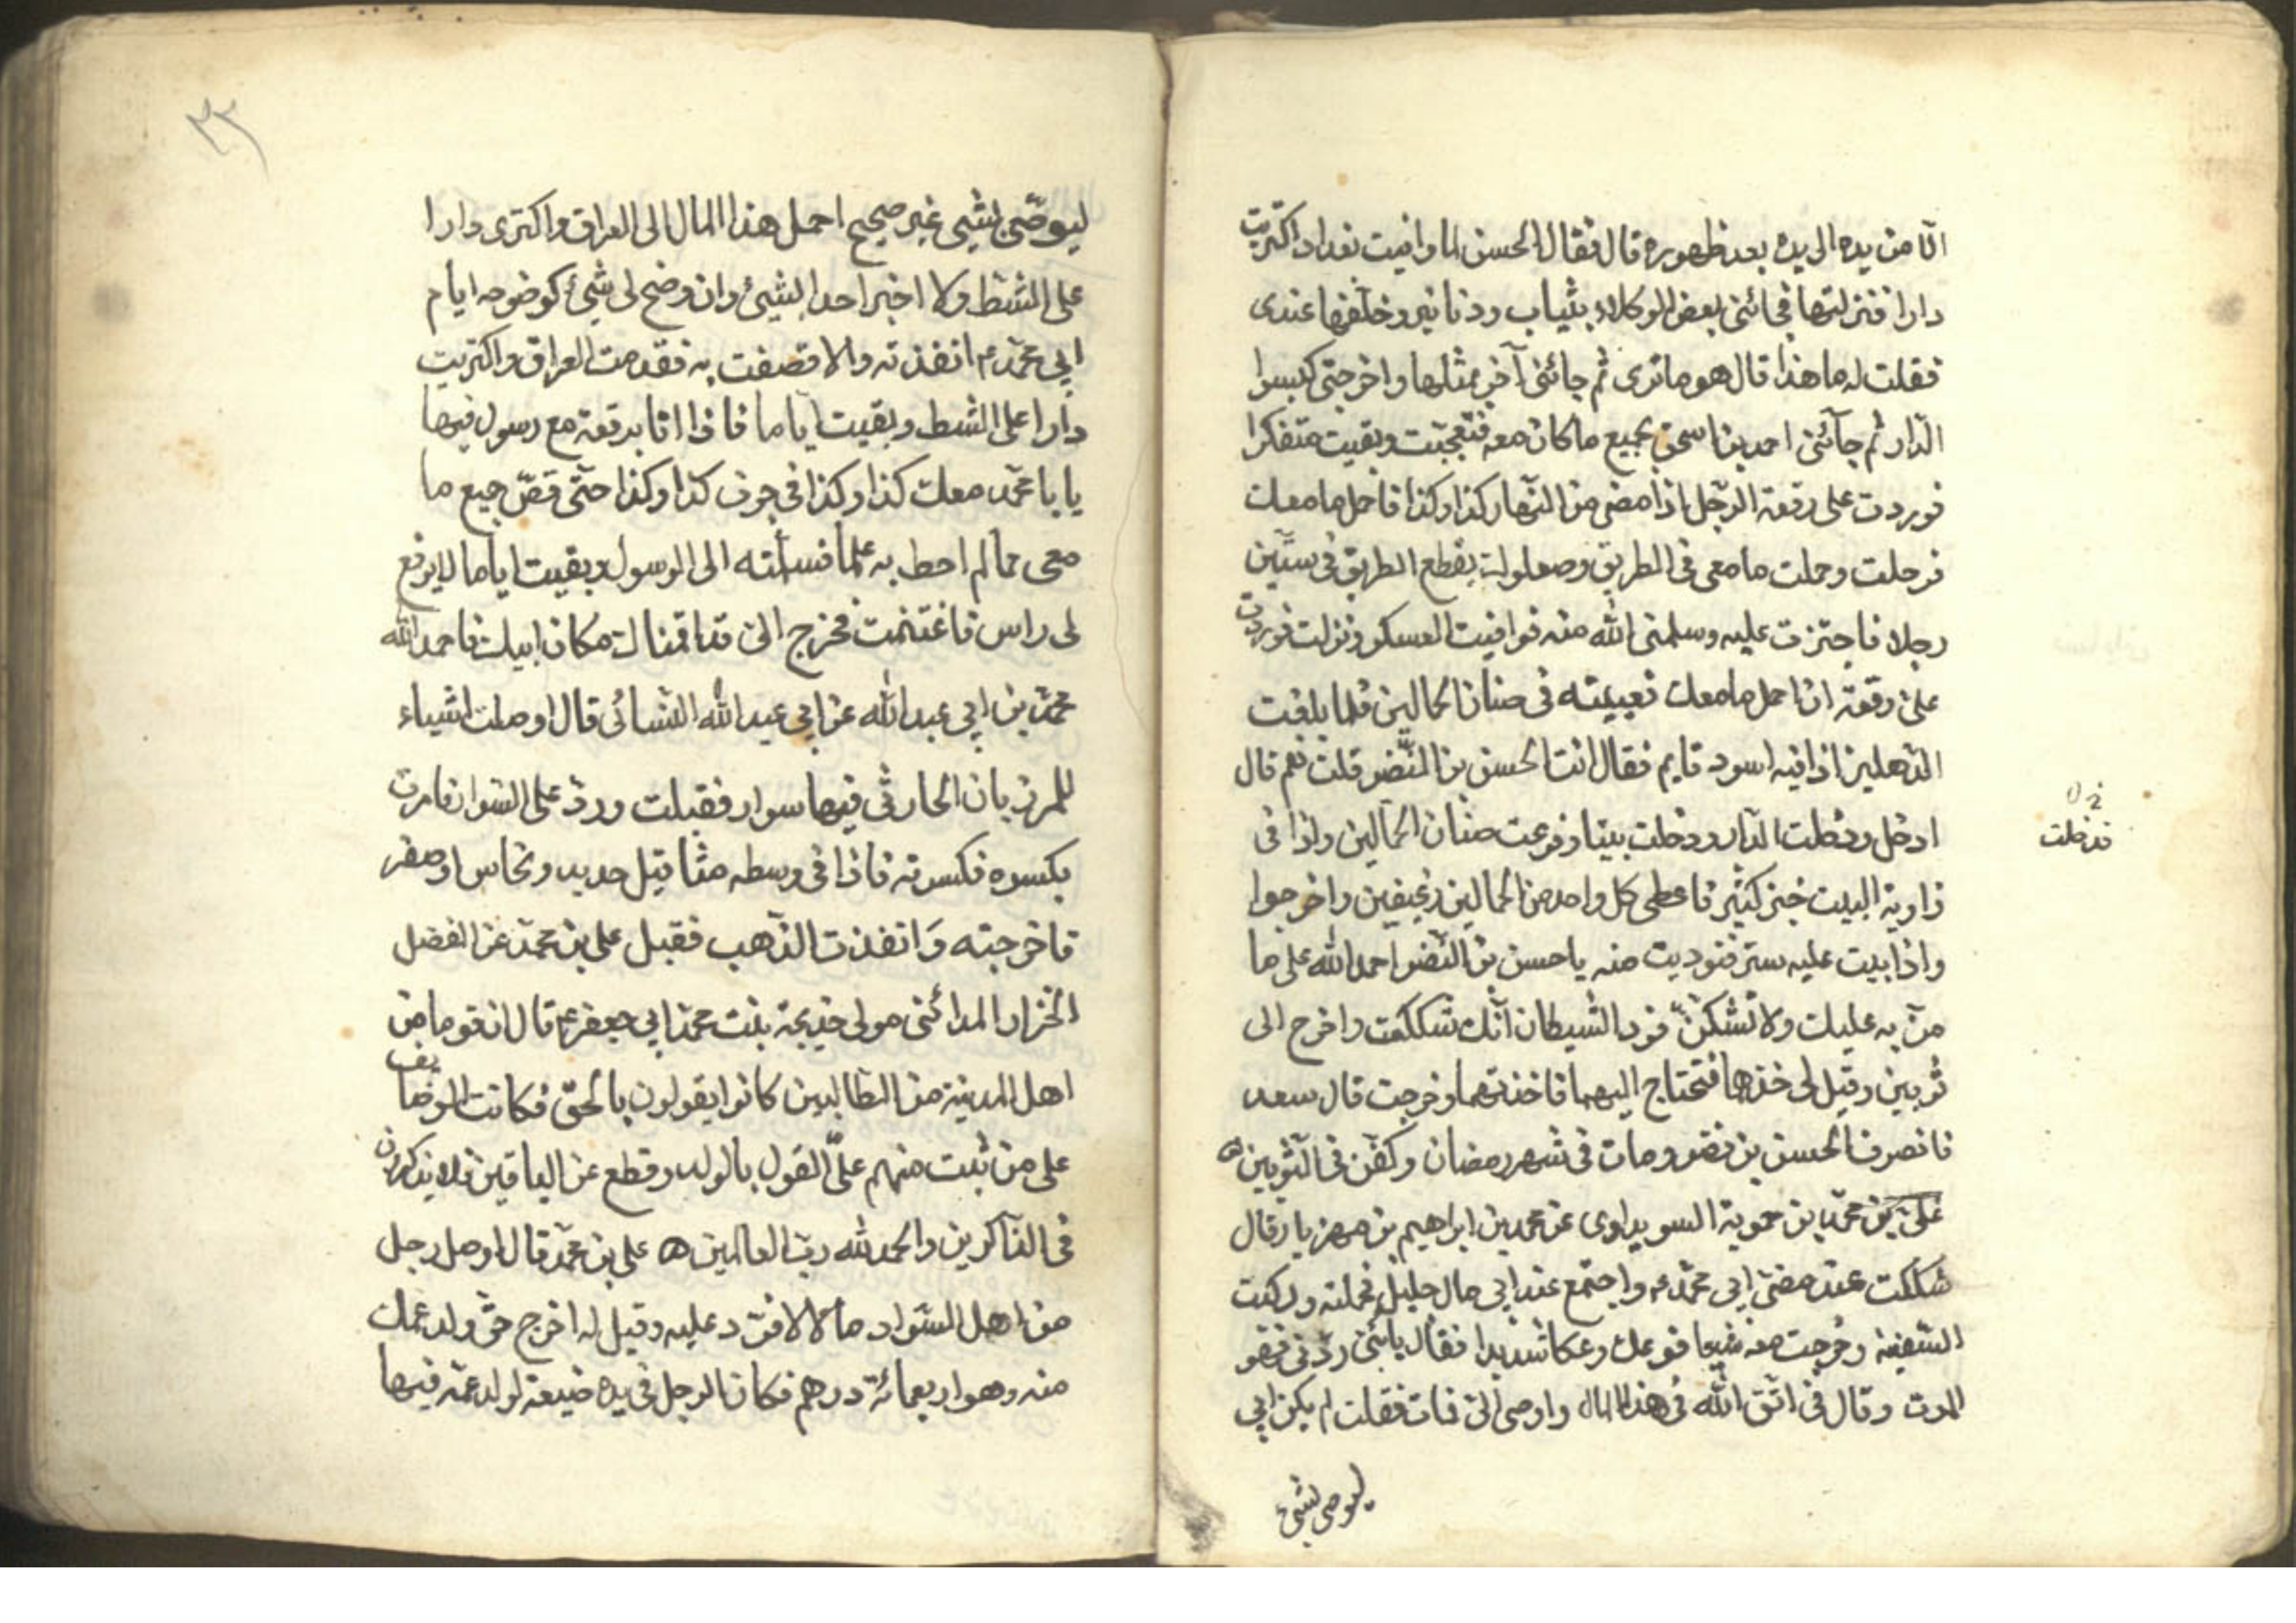 الا من يده الى يده بعد ظهوره قال فقال الحسن لما وافيت بغداد اكتريت
دارا فنزلتها فجائنى بعض الوكلاء بثياب ودنانير وخلفها عندى
فقلت له ما هذا قال هو ما ترى ثم جائنى آخر بمثلها واخر حتى كبسوا
الدار ثم جآئنى احمد بن اسحق بجميع ما كان معه فتعجبت وبقيت متفكرا
فوردت على رقعة الرجل اذا مضى من النهار كذا وكذا فاحمل ما معك
فرحلت وحملت ما معى فى الطريق وصعلوك يقطع الطريق فى ستين
رجلا فاجتزت عليه وسلمنى الله منه فوافيت العسكر ونزلت فوردت
على رقعة ان احمل ما معك فعبيته فى صنان الحمالين فلما بلغت
الدهليز اذا فيه اسود قايم فقال انت الحسن بن النضر قلت نعم قال
ادخل ودخلت الدار ودخلت بيتا وفرغت صنان الحمالين واذا فى
فدخلت
زاوية البيت خبز كثير فاعطى كل واحد من الحمالين رغيفين واخرجوا
واذا بيت عليه ستر فنوديت منه يا حسن بن النضر احمد الله على ما
من به عليك ولا تشكن فود الشيطان انك شككت واخرج الى
ثوبين وقيل لى خذهما فتحتاج اليهما فاخذتهما وخرجت قال سعد
فانصرف الحسن بن نضر ومات فى شهر رمضان وكفن فى الثوبين ه
على بن محمد بن حموية السويداوى عن محمد بن ابراهيم بن مهزيار قال
شككت عند مضى ابى محمد ع واجتمع عند ابى مال جليل فحمله وركبت
السفينة وخرجت معه شيعا فوعك وعكا شديدا فقال يا بنى ردنى فهو
الموت وقال فى اتق الله فى هذا المال واوصى الى فمات فقلت لم يكن ابى
ليوصى بشىء
٢٣
ليوصى بشيى غير صحيح احمل هذا المال الى العراق واكترى دارا
على الشط ولا اخبر احدا بشيئ وان وضح لى شيئ كوضوحه ايام
ابى محمد ع انفذته والا قصفت به فقدمت العراق واكتريت
دارا على الشط وبقيت اياما فاذا انا برقعة مع رسول فيها
يا با محمد معك كذا وكذا فى جوف كذا وكذا حتى قص جميع ما
معى مما لم احط به علما فسلمته الى الرسول وبقيت اياما لا يرفع
لى راس فاغتنمت فخرج الى قد اقمناك مكان ابيك فاحمد الله
محمد بن ابى عبد الله عن ابى عبد الله النسائى قال اوصلت اشياء
للمرزبان الحارثى فيها سوار فقبلت ورد على السوار فامرت
بكسره فكسرته فاذا فى وسطه مثاقيل حديد ونحاس او صفر
فاخرجته وانفذت الذهب فقبل على بن محمد عن الفضل
الخزار المدائنى مولى خديجة بنت محمد ابى جعفر ع قال ان قوما من
اهل المدينة من الطالبين كانوا يقولون بالحق فكانت الوضايف
على من ثبت منهم على القول بالولد وقطع عن الباقين فلا يذكرون
فى الذاكرين والحمد لله رب العالمين ه على بن محمد قال اوصل رجل
من اهل السواد مالا فرد عليه وقيل له اخرج حق ولد عمك
منه وهو اربعمائة درهم فكان الرجل فى يده ضيعة لولد عمه فيها